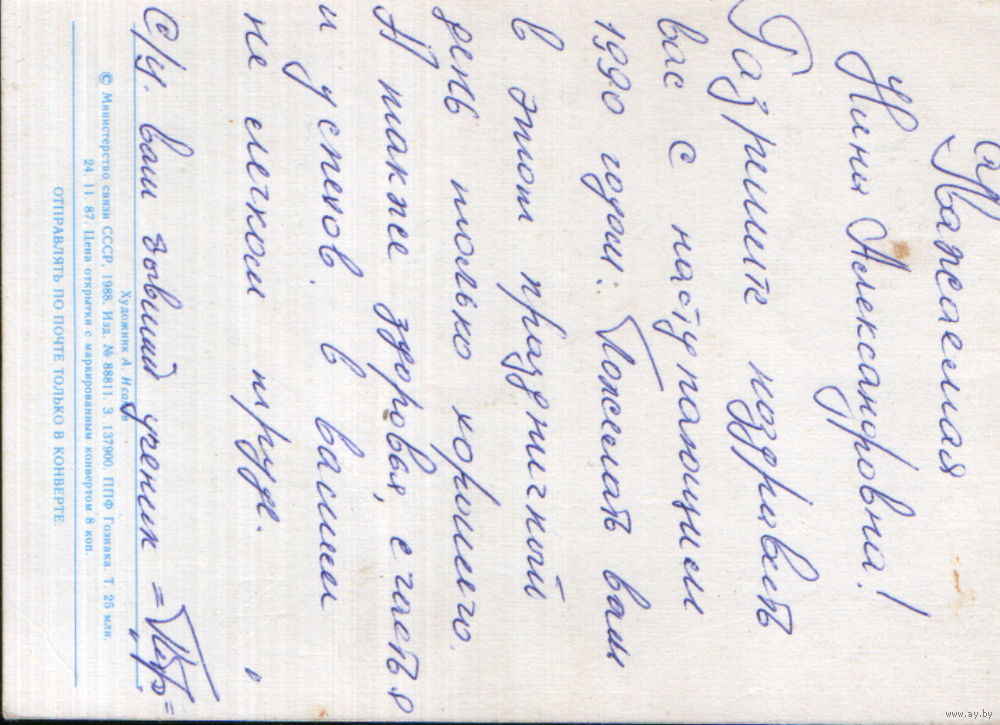 Уважаемая
Нина Александровна!
Разрешите поздравить
вас с наступающим
1990 годом. Пожелать вам
в этот праздничный
день только хорошего.
А также здоровья, счастья
и успехов. в вашем
не легком труде.
С/у. ваш бывший ученик
Художник А. Исаков
© Министерство связи СССР, 1988. Изд. № 88811. З. 137900. ППФ Гознака. Т. 25 млн.
24. 11. 87. Цена открытки с маркированным конвертом 8 коп.
ОТПРАВЛЯТЬ ПО ПОЧТЕ ТОЛЬКО В КОНВЕРТЕ.
www.ay.by